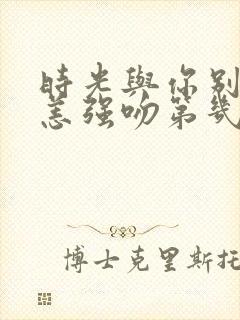 時光與你別
恙强吻第幾
博士克里斯托